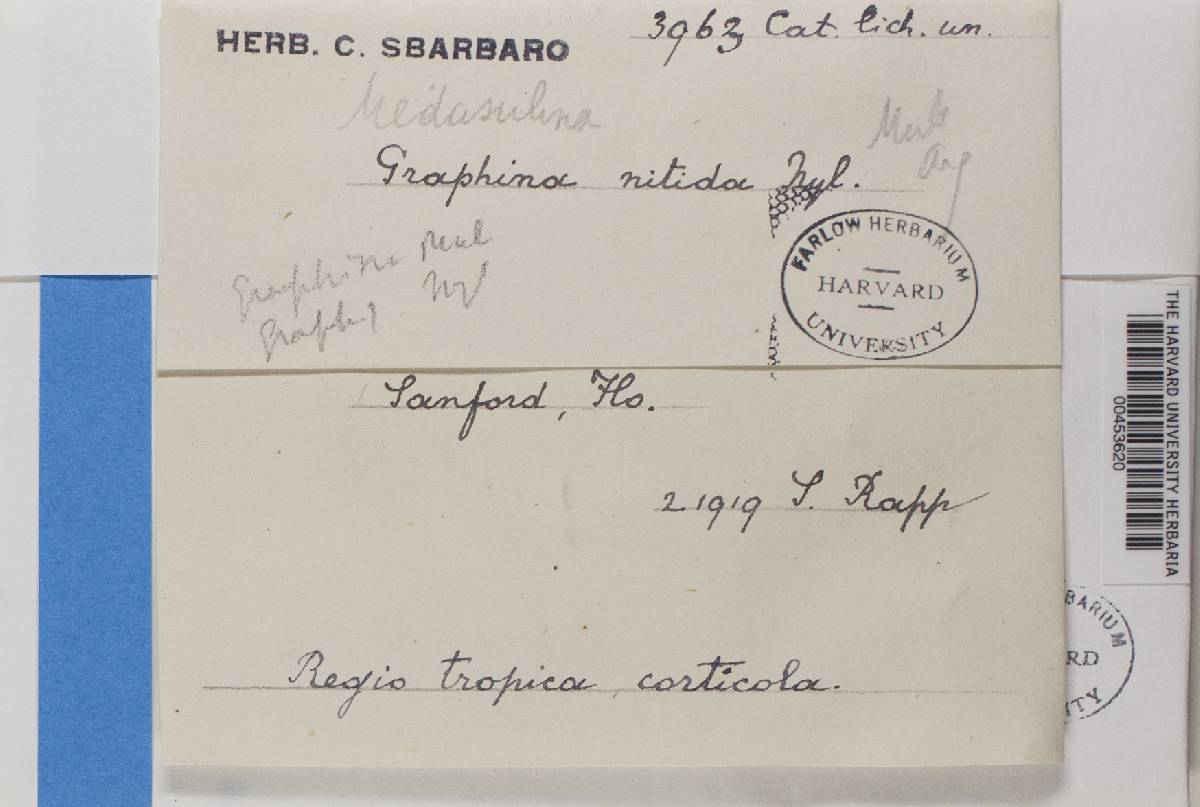 HERB. C. SBARBARO
3963 Cat. lich. un.
Medusulina
Graphina nitida Nyl.
Graphina
Nyl
Sanford, Flo.
2 1919 S. Rapp
Regio tropica, corticola.
FARLOW HERBARIUM
HARVARD
UNIVERSITY
THE HARVARD UNIVERSITY HERBARIA
00453620
BARIUM
RD
ITY